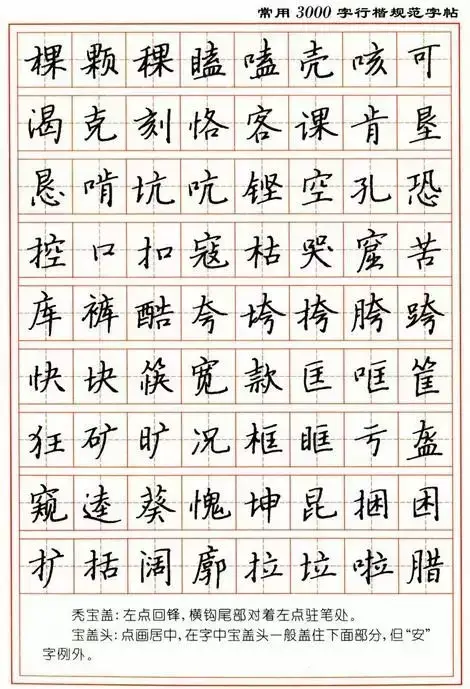 常用3000字行楷规范字帖
棵颗稞瞌嗑壳咳可
渴克刻恪客课肯垦
恳啃坑吭铿空孔恐
控口扣寇枯哭窟苦
库裤酷夸垮挎胯跨
快块筷宽款匡哐筐
狂矿旷况框眶亏盔
窥逵葵愧坤昆捆困
扩括阔廓拉垃啦腊
秃宝盖:左点回锋,横钩尾部对着左点驻笔处。
宝盖头:点画居中,在字中宝盖头一般盖住下面部分,但“安”
字例外。